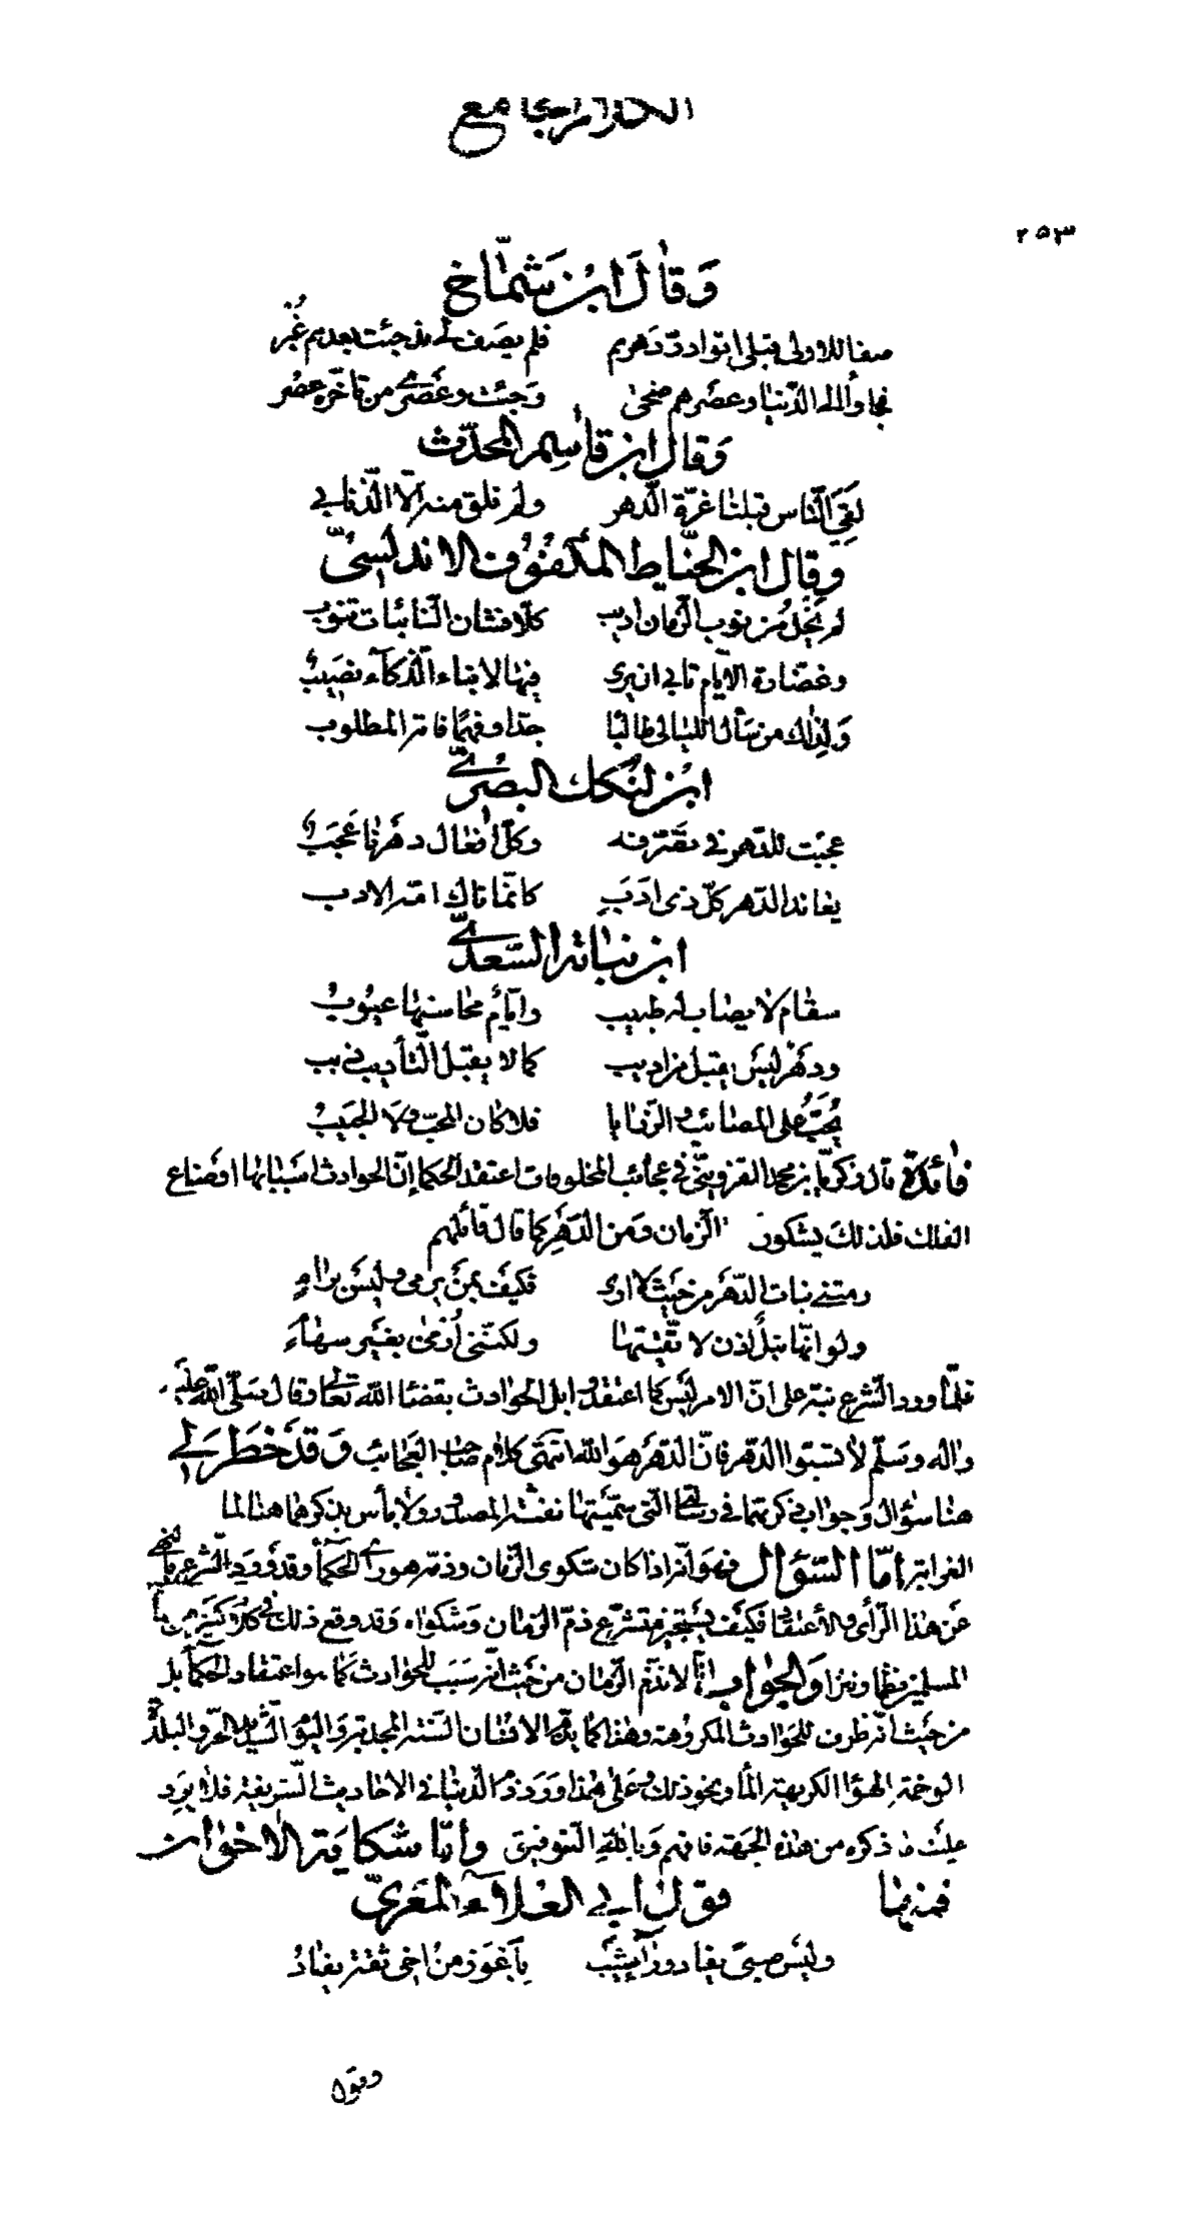 الكلام الجامع
٢٥٣
وَقَالَ ابْنُ شَمَّاخ
صفا للاولى قبلى اتوا درّ دهرهم فلم يصف لى مذ جئت بعدهم غُبْر
فجاؤا الى الدّنيا وعصرهم ضحىً وَجئت وعَصْرى من تأخّره عصْر
وَقال ابن قاسم المحدّث
لَقِىَ النّاس قبلنا غرّة الدّهر ولم نلق منه الّا الذّنابى
وقال ابن الحنّاط المكفُوف الاندلسىّ
لم يَخْلُ من نوب الزّمان اديب كلّا فشان النّائبات تنوب
وغضارة الايّام تابى ان يرى فيها لابناء الذّكآء نصَيبُ
وَلِذاك من سأل اللّيالى طالبًا جدّا وفهمًا فاته المطلوب
ابن لنكك البصْرىّ
عجبت للدّهر فى تصَرّفه وكلّ افعال دهرنا عَجَبُ
يعاند الدّهر كلّ ذى ادَبَ كانّما ناك امّه الادب
ابن نباتة السّعدىّ
سقام لا يصاب له طبيب وايّام محاسنها عيُوبُ
ودهْر ليس يقبل من اديب كما لا يقبل التّأديب ذيب
يُحَبُّ على المصائب والرّزايا فلا كان المحبّ ولا الحَبيبُ
فائدة قال زكريّا بن محمد القزوينىّ فى عجائب المخلوقات اعتقد الحكما انّ الحوادث اسبابها اوضاع
الفلك فلذلك يشكون الزّمان ومن الدّهر كما قال قائلهم
رمتنى نبات الدّهر من حَيث لا ارى فكيفَ بمن يرمى وليسَ برام
ولو انّها نبل اذن لا تّقيتها ولكنّنى اُرْمى بغَير سهام
فلمّا ورد الشّرع نبّه على انّ الامر ليس كما اعتقدوا بل الحوادث بقضا الله تعالى وقال صَلّى الله عليه
واله وسَلّم لا تسبّوا الدّهر فانّ الدّهر هوَ الله انتهى كلام صاحب العجائب وَقَدْ خَطَرَ لى
هنا سؤال وجواب ذكرتهما فى رسالتى الّتى سمّيتها نفثة المصدور ولا بأس بذكرهما هنا لما
الغرابة امّا السّؤال فهوَ انّه اذا كان شكوى الزّمان وذمّه هو رأى الحكمآء وقد وَرَد الشّرع بالنّهى
عَن هذا الرّأى والاعتقاد فكيفَ يستجيز متشرّع ذمّ الزّمان وَشكواه وَقد وقع ذلك فى كلام كثير من
المسلمين نظما ونثرا وَالجواب انّا لا نذمّ الزّمان من حَيث انّه سَبَب للحوادث كما هو اعتقاد الحكمآء بل
من حَيث انّه ظرف للحَوادث المكروهة وهذا كما يذمّ الانسان السّنة المجدبة وَاليوم الشّديد الحرّ والبلدة
الوخمة الهوآء الكريهة المآء ونحو ذلك وَعلى هذا وَرَد ذمّ الدّنيا فى الاحاديث الشّريفة فلا يَرِد
علينا ما ذكره من هذه الجهة فافهم وَبالله التّوفيق وامّا شكاية الاخوان
فمنها قول ابى العَلآء المعَرىّ
وليس صبىّ يفاد ورآء شيب باَعْوَز من اخى ثقة يفادُ
ويقول